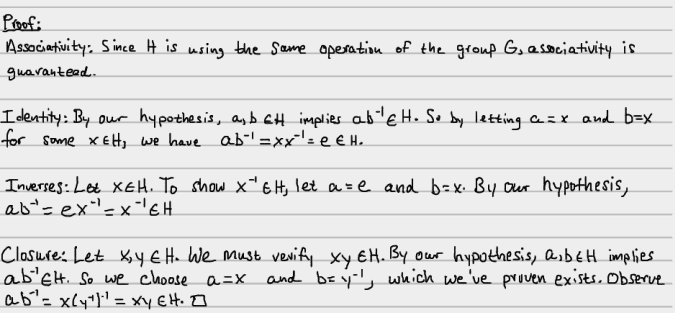 Proof:
Associativity: Since H is using the same operation of the group G, associativity is
guaranteed.
Identity: By our hypothesis, a,b ∈H implies ab⁻¹∈H. So by letting a=x and b=x
for some x∈H, we have ab⁻¹=xx⁻¹=e ∈ H.
Inverses: Let x∈H. To show x⁻¹∈H, let a=e and b=x. By our hypothesis,
ab⁻¹=ex⁻¹=x⁻¹∈H
Closure: Let x,y ∈H. We must verify xy∈H. By our hypothesis, a,b∈H implies
ab⁻¹∈H. So we choose a=x and b=y⁻¹, which we've proven exists. Observe
ab⁻¹=x(y⁻¹)⁻¹=xy∈H. □